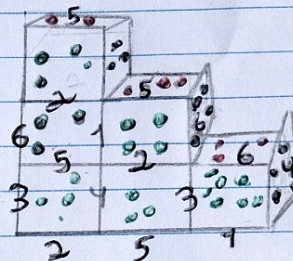 5
2 5
6 1 6
5 2 6
3 4 3 4
2 5 1